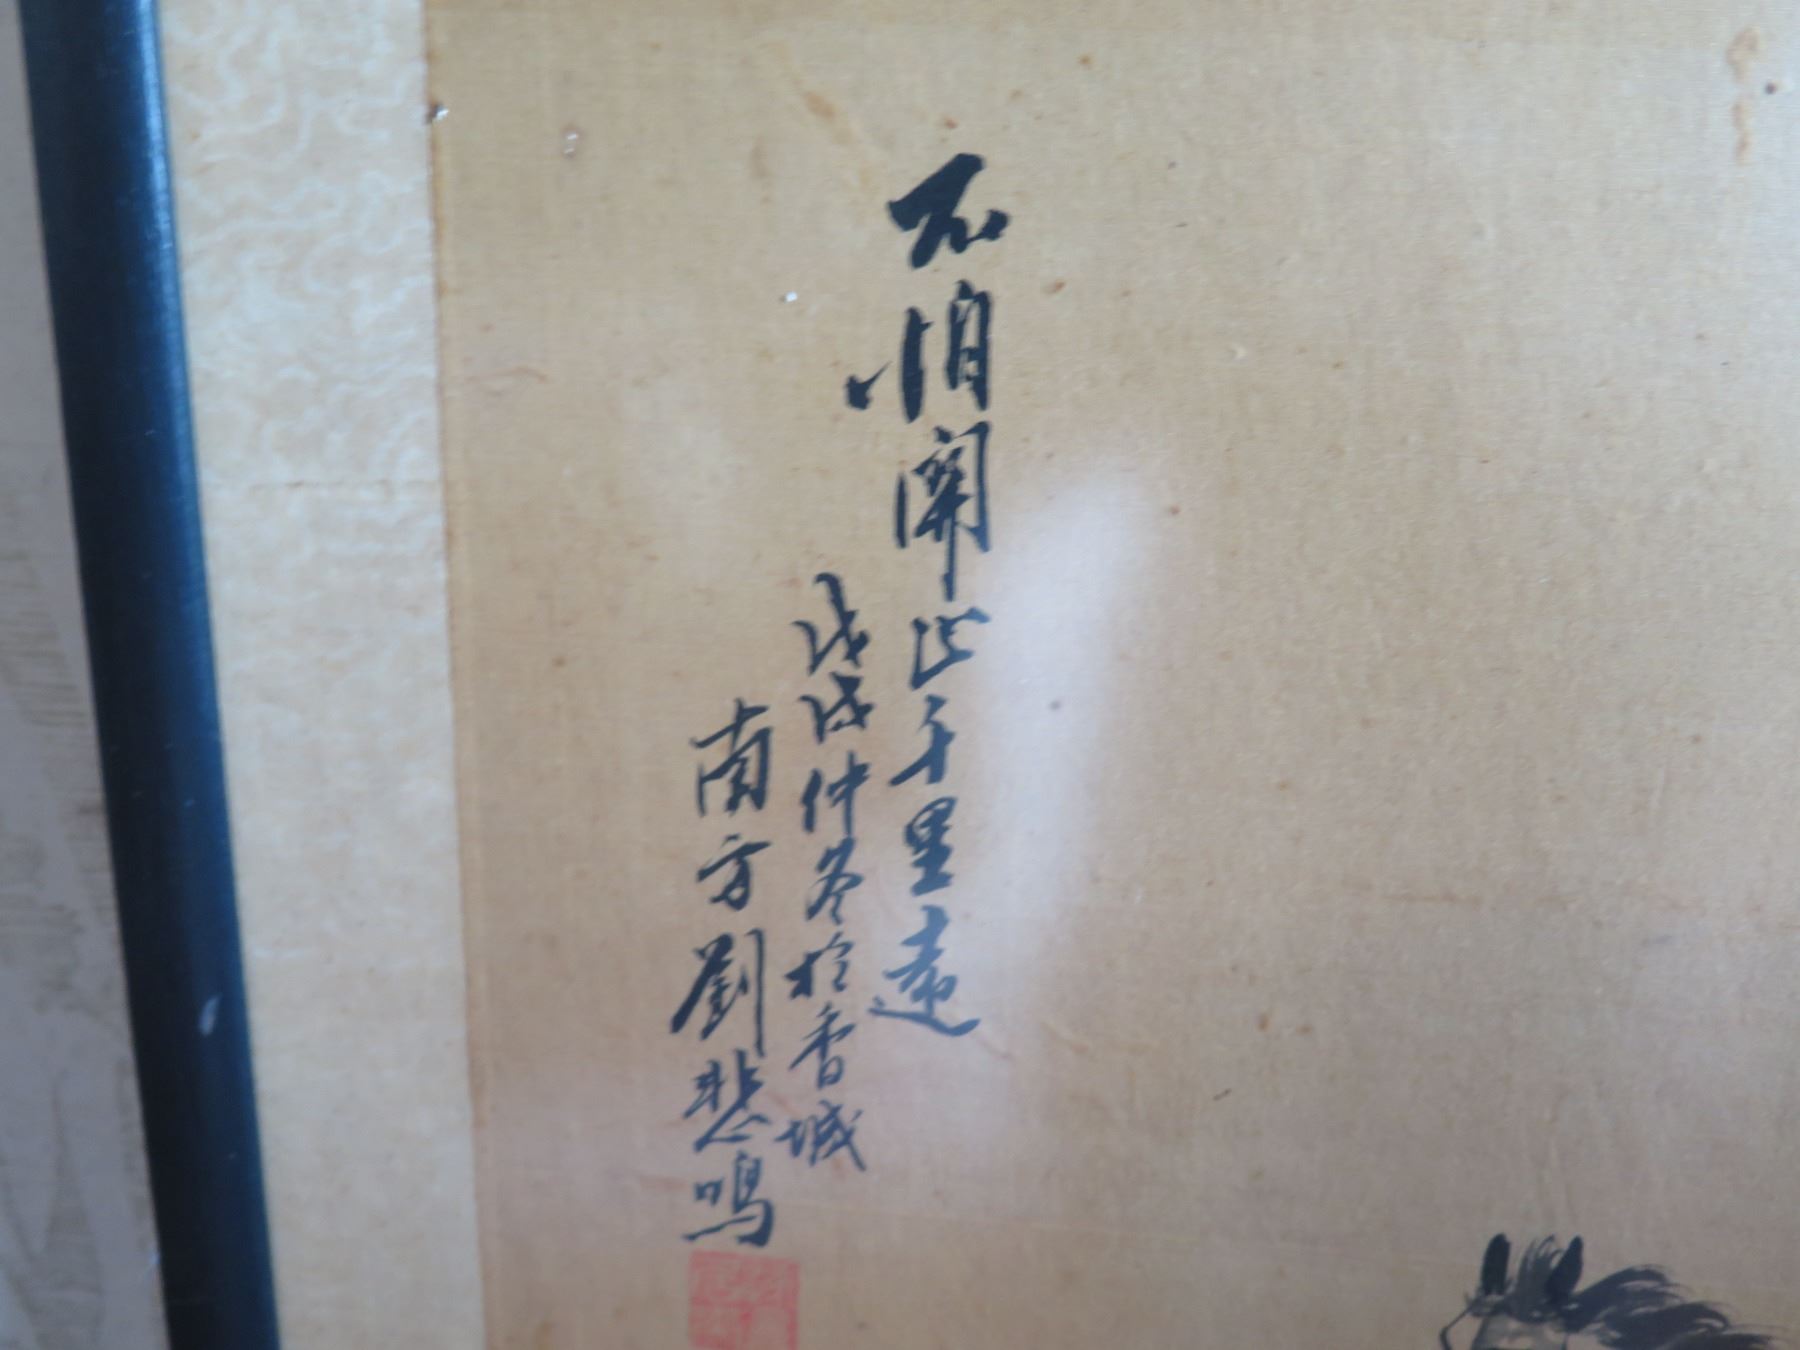 不怕關山千里遠
戊戌仲冬於香城
南方劉悲鳴